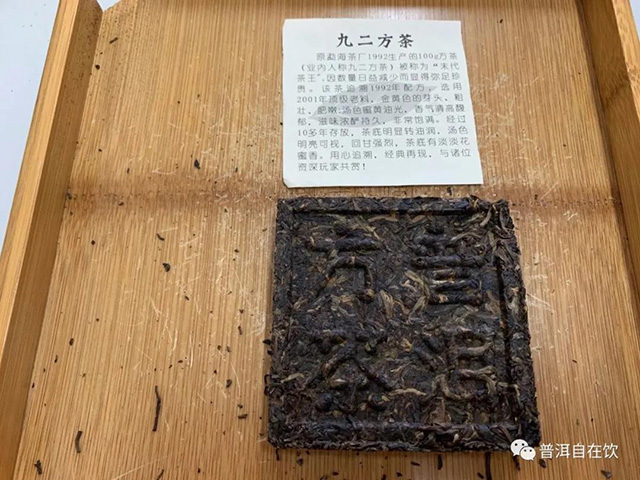 九二方茶
原勐海茶厂1992生产的100g方茶
(业内人称九二方茶) 被称为“末代
茶王”,因数量日益减少而显得弥足珍
贵。该茶追溯1992年配方，选用
2001年顶级老料，金黄色的芽头，粗
壮，肥嫩;汤色蜜黄油光，香气清高馥
郁，滋味浓酽持久，非常饱满。经过
10多年存放，茶底明显转油润，汤色
明亮可视，回甘强烈，茶底有淡淡花
蜜香。用心追溯，经典再现，与诸位
资深玩家共赏!
普洱
方茶
普洱自在饮